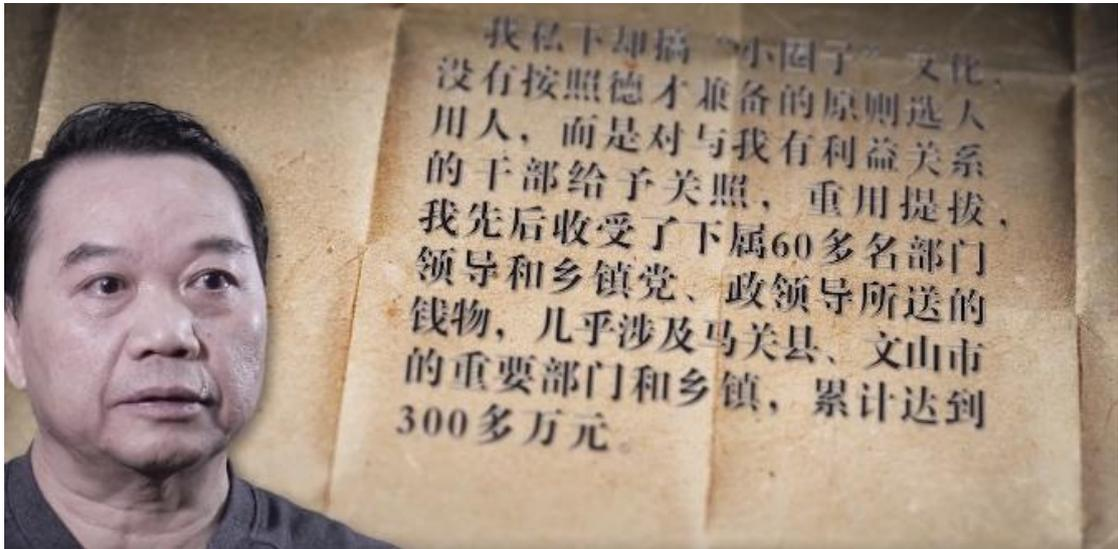 我私下却搞“小圈子”文化，
没有按照德才兼备的原则选人
用人，而是对与我有利益关系
的干部给予关照，重用提拔，
我先后收受了下属60多名部门
领导和乡镇党、政领导所送的
钱物，几乎涉及马关县、文山市
的重要部门和乡镇，累计达到
300多万元。